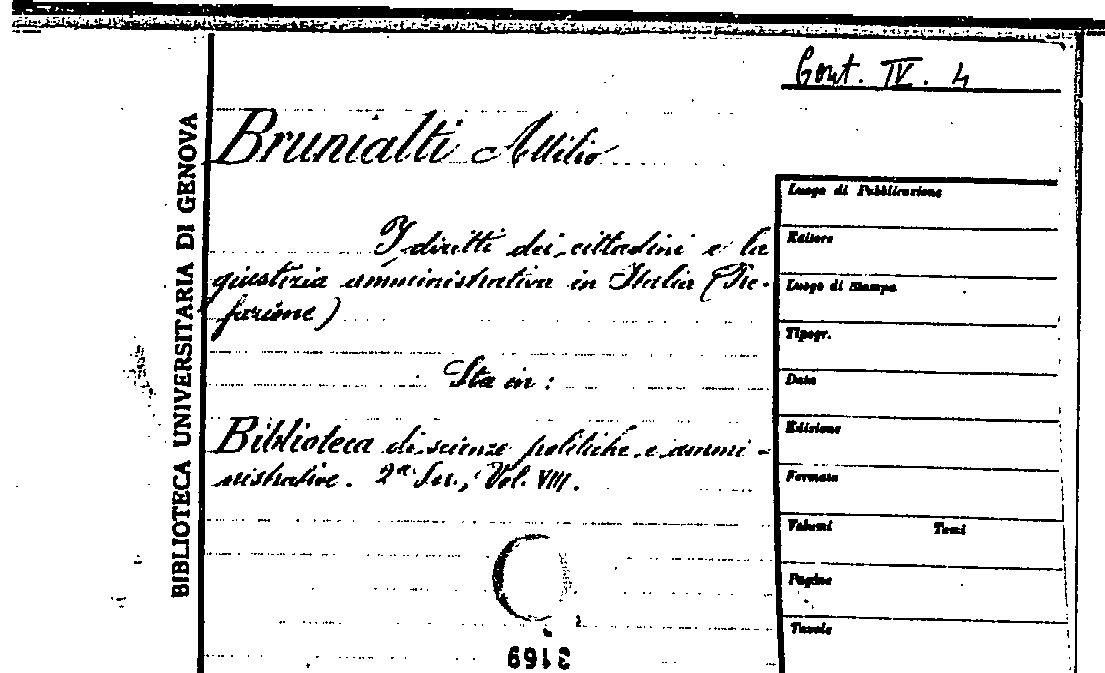 Cont. IV. 4
BIBLIOTECA UNIVERSITARIA DI GENOVA
Brunialti Attilio
I diritti dei cittadini e la
giustizia amministrativa in Italia (Pre-
fazione)
Sta in:
Biblioteca di scienze politiche e ammi-
nistrative. 2ª Ser., Vol. VIII.
3169
Luogo di Pubblicazione
Editore
Luogo di Stampa
Tipogr.
Data
Edizione
Formato
Volumi Tomi
Pagine
Tavole